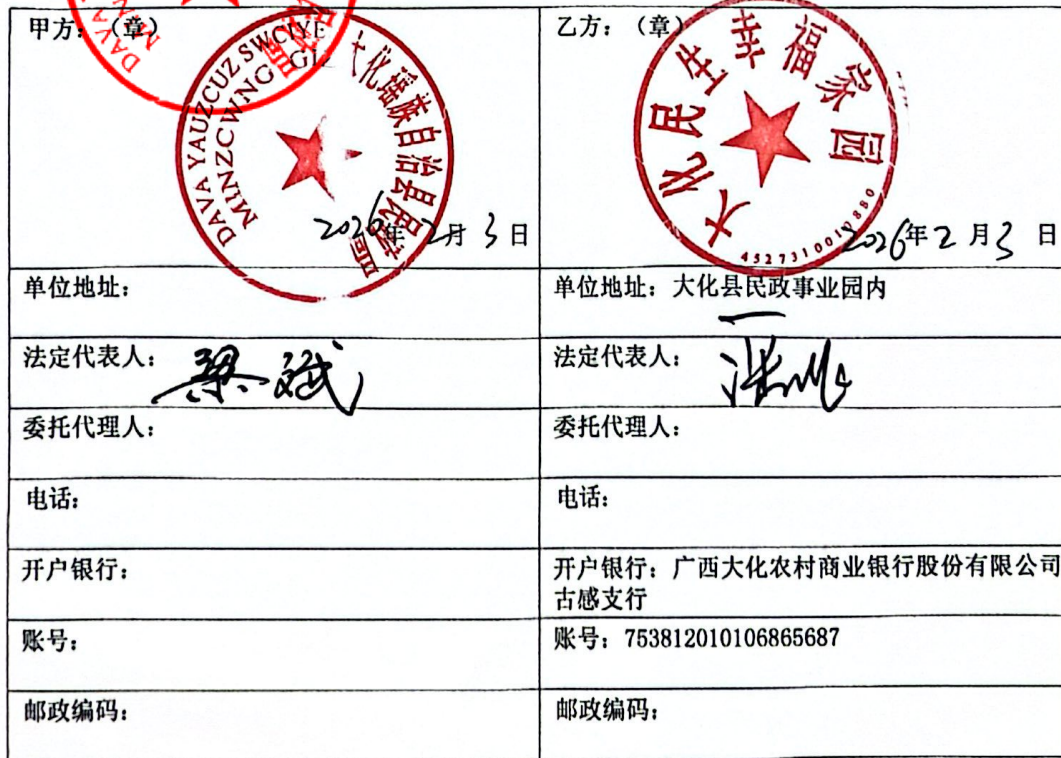 甲方：（章）
DAVA YAUZCUZ SWCIYEN
大化瑶族自治县民政局
MINZCWNGGIZ
2026年2月3日
乙方：（章）
大化民生幸福家园
4527310010880
2026年2月3日
单位地址：
单位地址：大化县民政事业园内
法定代表人：梁斌
法定代表人：
委托代理人：
委托代理人：
电话：
电话：
开户银行：
开户银行：广西大化农村商业银行股份有限公司
古感支行
账号：
账号：753812010106865687
邮政编码：
邮政编码：